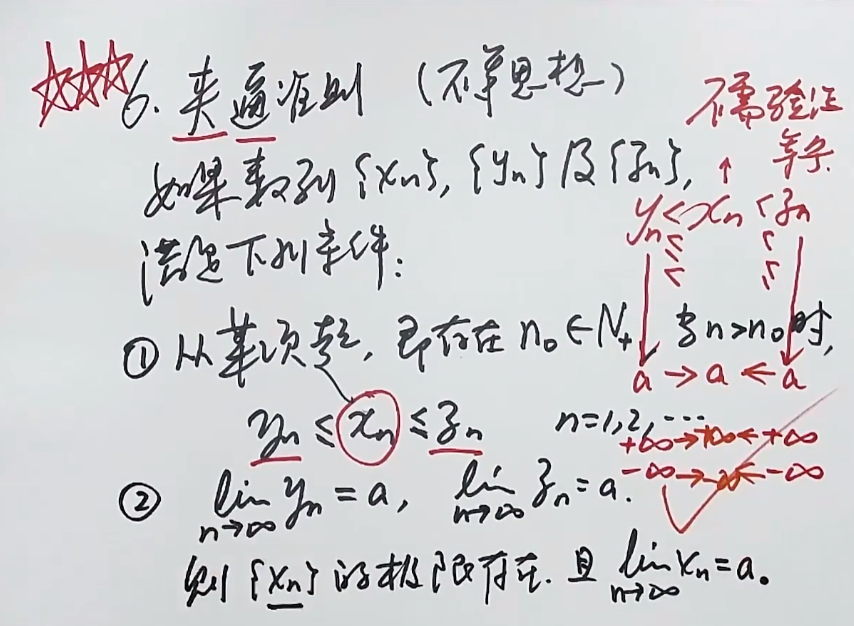 ☆☆☆ 6. 夹逼准则 (不等思想)
如果数列 {xn}, {yn} 及 {zn},
满足下列条件:
① 从某项起, 即存在 n₀∈N₊, 当 n>n₀ 时,
yn ≤ xn ≤ zn n=1,2,…
② lim n→∞ yn = a, lim n→∞ zn = a.
则 {xn} 的极限存在. 且 lim n→∞ xn = a。
不需验证
等号
↑
yn < xn < zn
< <
< <
a → a ← a
+∞ → +∞ ← +∞
-∞ → -∞ ← -∞